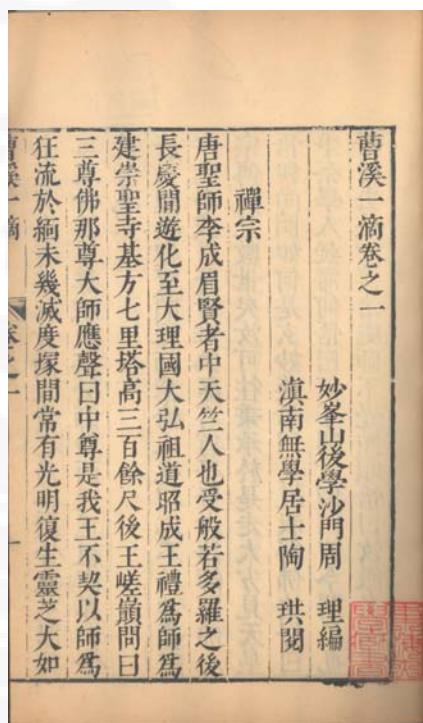 曹溪一滴卷之一
妙峯山後學沙門周　理編
滇南無學居士陶　珙閱
禪宗
唐聖師李成眉賢者中天竺人也受般若多羅之後
長慶間遊化至大理國大弘祖道昭成王禮爲師爲
建崇聖寺基方七里塔高三百餘尺後王嵯巓問曰
三尊佛那尊大師應聲曰中尊是我王不契以師爲
狂流於緬未幾滅度塚間常有光明復生靈芝大如
曹溪一滴　卷之一　一